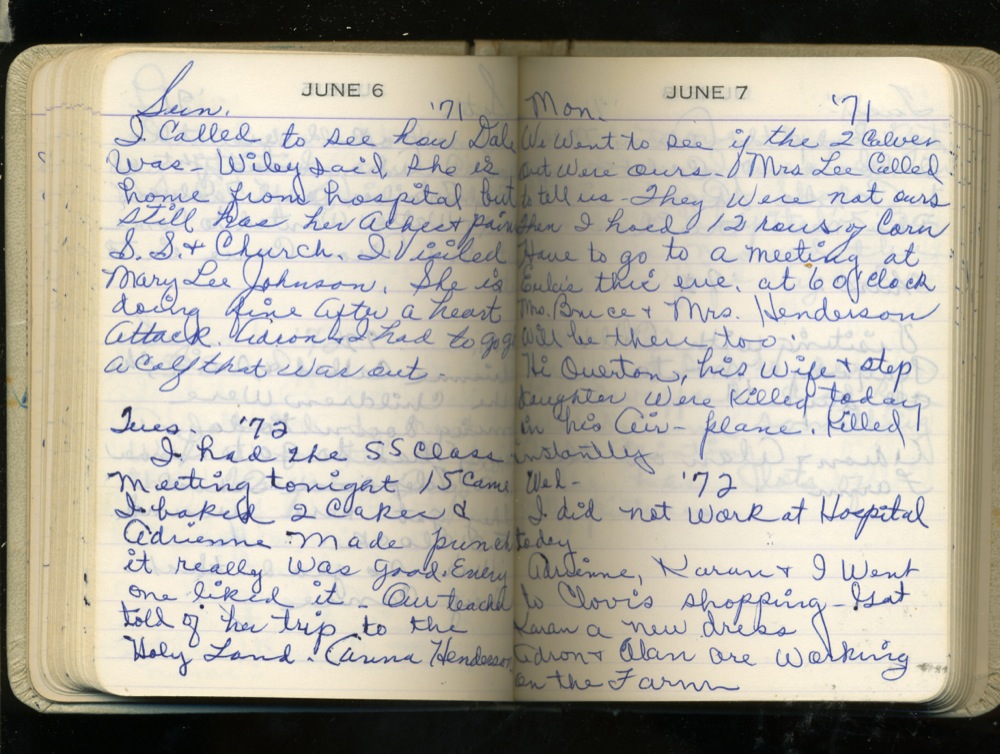 JUNE 6
Sun. '71
I Called to see how Dale
was - Wiley said she is
home from hospital but
still has her aches & pain
S.S. & Church. I visited
Mary Lee Johnson. She is
doing fine after a heart
attack. Adron & I had to go get
a calf that was out.
Tues. '72
I had the SS Class
Meeting tonight 15 came
I baked 2 cakes &
Adrienne made punch
it really was good. Every
one liked it - Our teacher
told of her trip to the
Holy Land. Carina Henderson
JUNE 7
Mon. '71
We Went to see if the 2 Calves
out Were ours - Mrs Lee Called
to tell us - They Were not ours
then I hoed 12 rows of Corn
Have to go to a meeting at
Eula's this eve. at 6 O'clock
Mrs. Bruce & Mrs. Henderson
will be there too.
Hi Overton, his Wife & step
daughter Were Killed today
in his Air-plane. Killed
instantly
Wed - '72
I did not Work at Hospital
today
Adrienne, Karan & I Went
to Clovis shopping - Got
Karan a new dress
Adron & Alan are Working
on the Farm